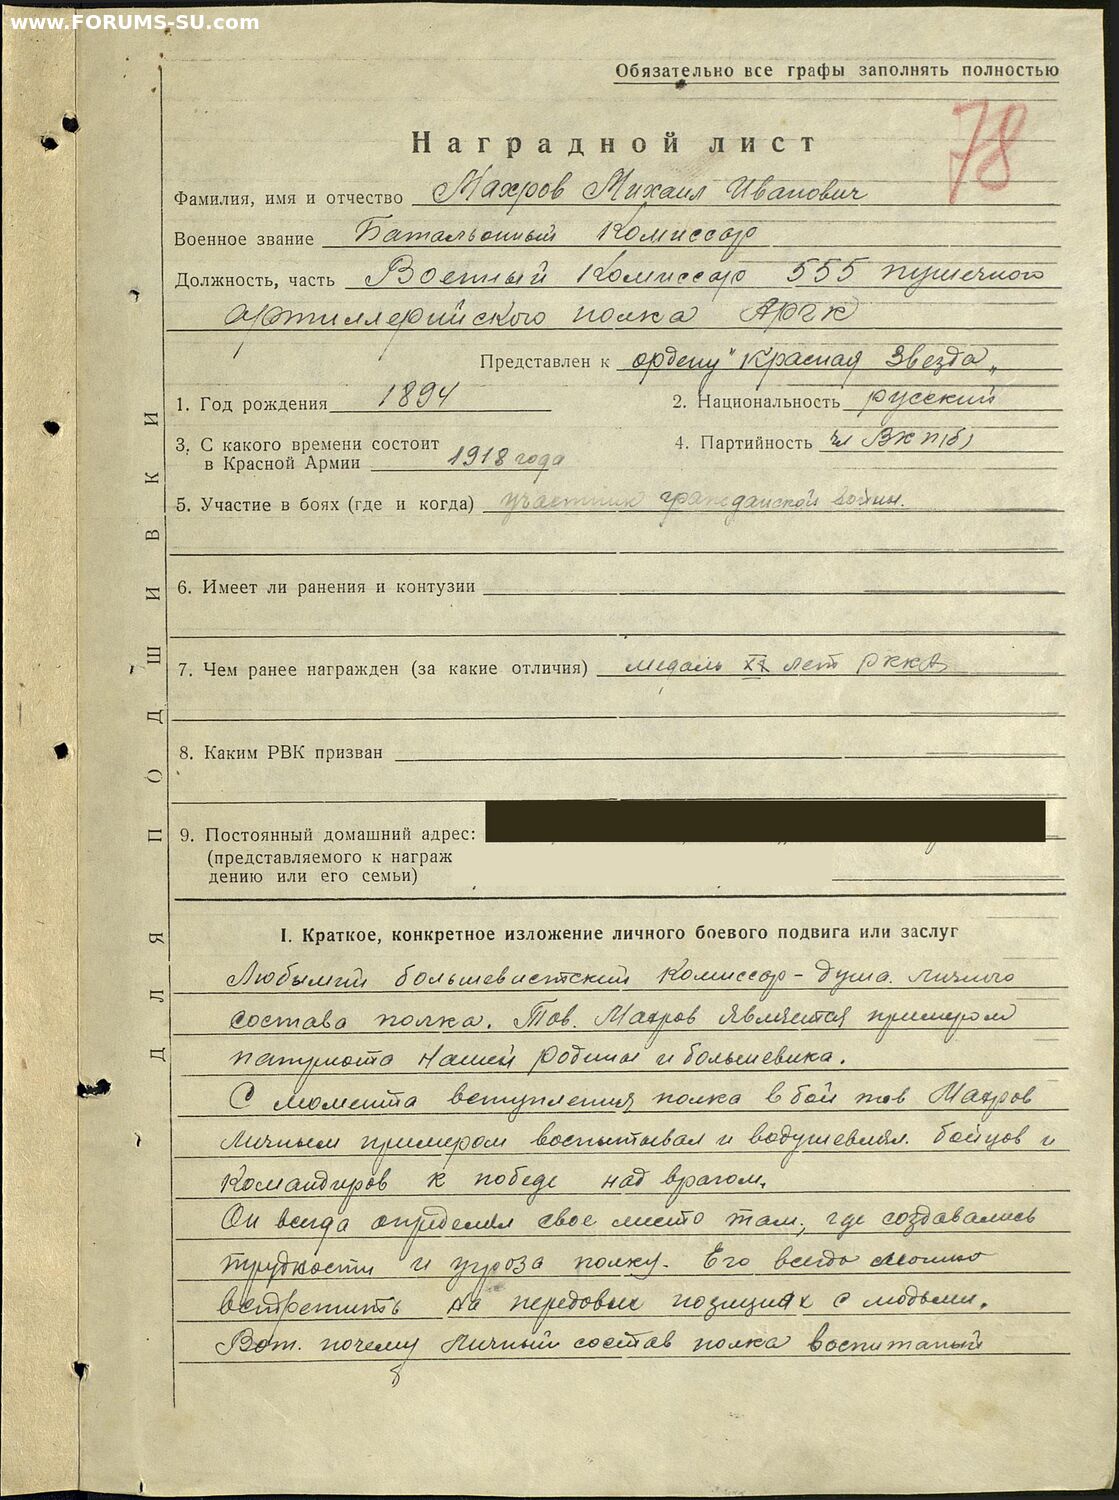 www.FORUMS-SU.com
Обязательно все графы заполнять полностью
78
Наградной лист
Фамилия, имя и отчество Махров Михаил Иванович
Военное звание Батальонный Комиссар
Должность, часть Военный Комиссар 555 пушечного
артиллерийского полка АРГК
Представлен к ордену "Красная Звезда„
1. Год рождения 1894
2. Национальность русский
3. С какого времени состоит
в Красной Армии 1918 года
4. Партийность чл ВКП(б)
5. Участие в боях (где и когда) участник гражданской войны.
6. Имеет ли ранения и контузии
7. Чем ранее награжден (за какие отличия) медаль XX лет РККА
8. Каким РВК призван
9. Постоянный домашний адрес:
(представляемого к награж
дению или его семьи)
I. Краткое, конкретное изложение личного боевого подвига или заслуг
Любымый большевистский Комиссар - душа личного
состава полка. Тов. Махров является примером
патриота нашей родины и большевика.
С момента вступления полка в бой тов Махров
личным примером воспитывал и водушевлял бойцов и
Командиров к победе над врагом.
Он всегда определял свое место там, где создавались
трудности и угроза полку. Его всегда можно
встретить на передовых позициях с людьми.
Вот почему личный состав полка воспитаный
ДЛЯ ПОДШИВКИ